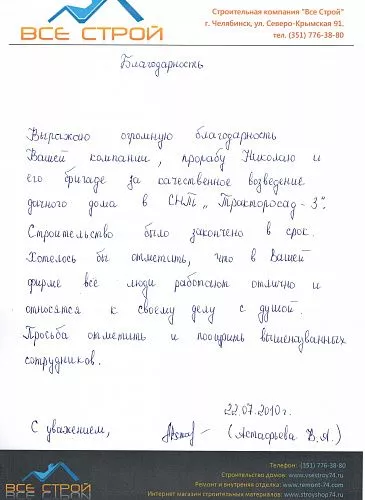 ВСЕ СТРОЙ
Строительная компания "Все Строй"
г. Челябинск, ул. Северо-Крымская 91.
тел. (351) 776-38-80
Благодарность
Выражаю огромную благодарность
Вашей компании, прорабу Николаю и
его бригаде за качественное возведение
дачного дома в СНТ „Тракторосад-3".
Строительство было закончено в срок.
Хотелось бы отметить, что в Вашей
фирме все люди работают отлично и
относятся к своему делу с душой.
Просьба отметить и поощрить вышеназванных
сотрудников.
22.07.2010г.
С уважением, (Астафьева В.А.)
ВСЕ СТРОЙ
Телефон: (351) 776-38-80
Строительство домов: www.vsestroy74.ru
Ремонт и внутренняя отделка: www.remont-74.com
Интернет магазин строительных материалов: